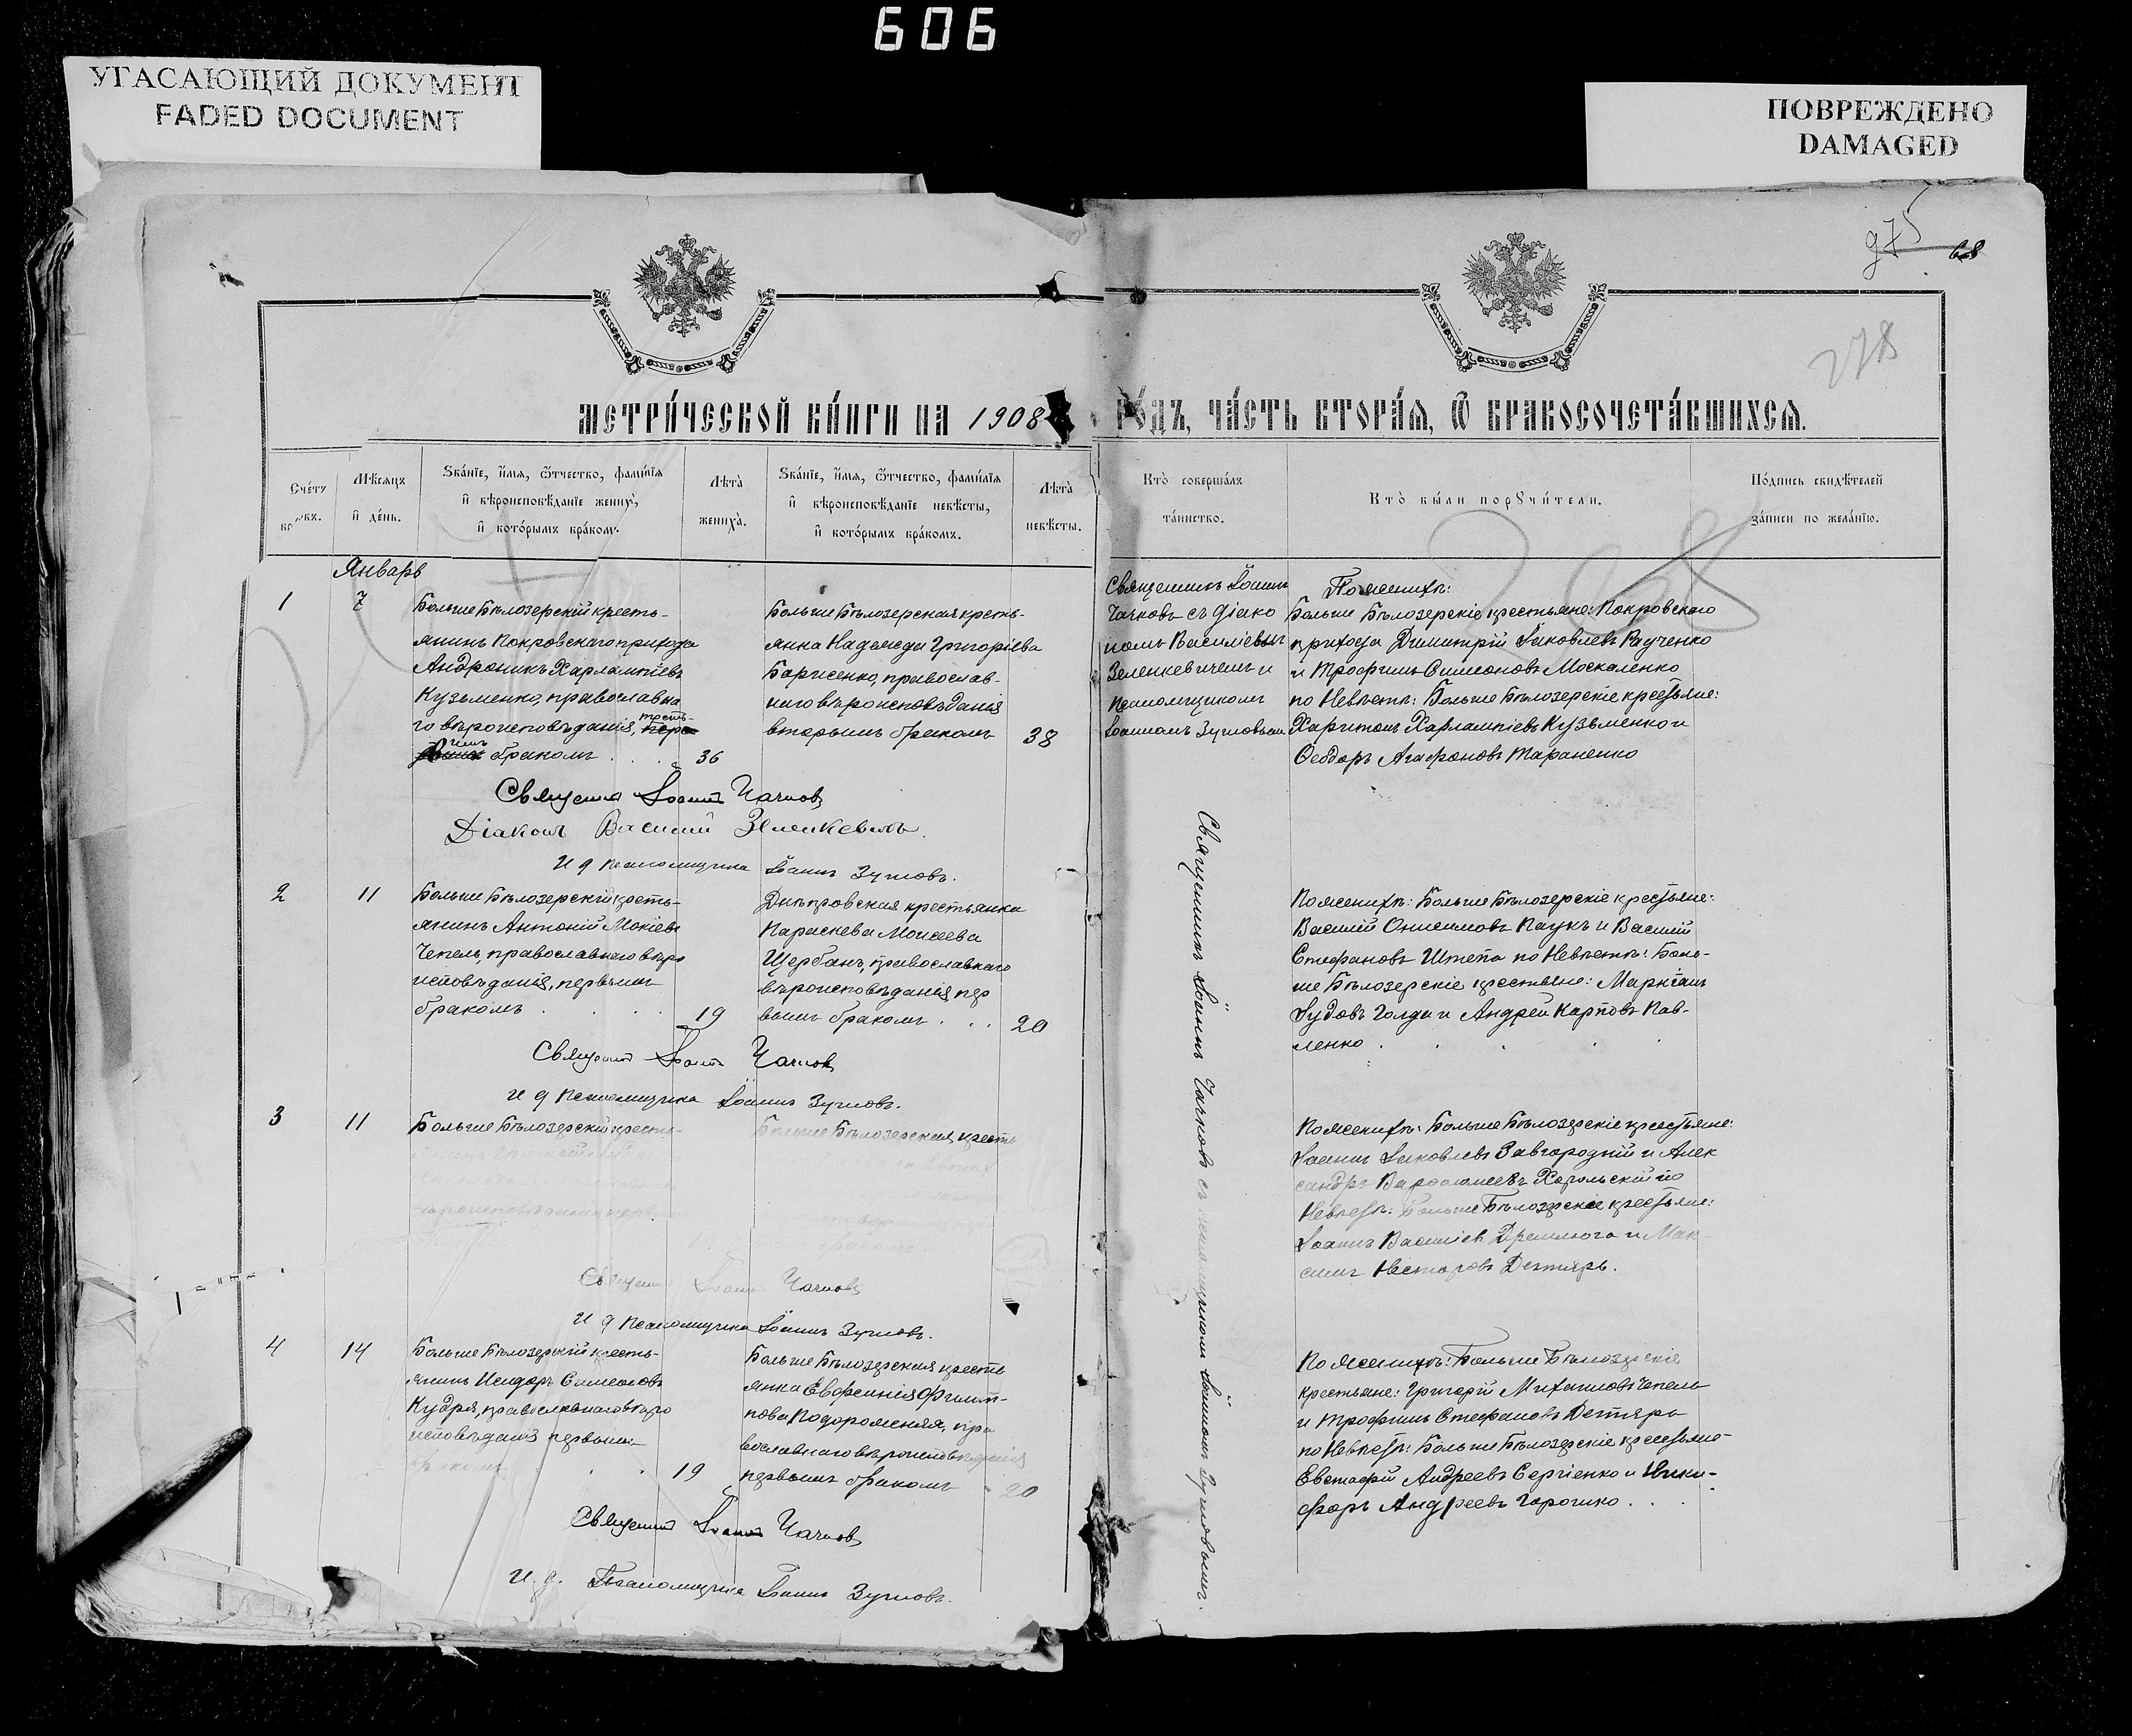 606
УГАСАЮЩИЙ ДОКУМЕНТ
FADED DOCUMENT
ПОВРЕЖДЕНО
DAMAGED
975
68
278
МЕТРИ́ЧЕСКОЙ КНИ́ГИ НА 1908 ГО́ДЪ, ЧА́СТЬ ВТОРА́Я, Ѡ БРАКОСОЧЕТА́ВШИХСЯ.
Сче́тъ
Мѣсяцъ
и де́нь.
Зва́нїе, и́мя, ѻ҆́тчество, фами́лїя
и вѣроисповѣ́данїе жениха̀,
и кото́рымъ бра́комъ.
Лѣта̀
жениха̀.
Зва́нїе, и́мя, ѻ҆́тчество, фами́лїя
и вѣроисповѣ́данїе невѣ́сты,
и кото́рымъ бра́комъ.
Лѣта̀
невѣ́сты.
Кто̀ соверша́лъ
та́инство.
Кто̀ бы́ли порꙋчи́тели.
По́дпись свидѣ́телей
за́писи по жела́нїю.
Январь
1
7
Больше Бѣлозерскій кресть-
янинъ Покровскаго прихода
Андроникъ Харлампіевъ
Кузьменко, православна
го вѣроисповѣданія, треть-
имъ бракомъ . . . 36
Больше Бѣлозерская кресть-
янка Надежда Григоріева
Борисенко, православ-
наго вѣроисповѣданія
вторымъ бракомъ 38
Священникъ Іоаннъ
Чачковъ съ діако
номъ Василіемъ
Зеленкевичемъ и
псаломщикомъ
Іоанномъ Зуимовымъ
По женихѣ:
Больше Бѣлозерскіе крестьяне Покровскаго
прихода Димитрій Іаковлевъ Радченко
и Трофимъ Симеоновъ Москаленко
по Невѣстѣ: Больше Бѣлозерскіе крестьяне:
Харитонъ Харлампіевъ Кузьменко и
Ѳеодоръ Агафоновъ Тараненко
Священникъ Іоаннъ Чачковъ
Діаконъ Василій Зеленкевичъ.
И д псаломщика Іоаннъ Зуимовъ.
2
11
Больше Бѣлозерскій кресть-
янинъ Антоній Мокіевъ
Чепель, православнаго вѣро
исповѣданія, первымъ
бракомъ . . . . 19
Днѣпровская крестьянка
Параскева Моисеева
Щербань, православнаго
вѣроисповѣданія пер
вымъ бракомъ . . . 20
По женихѣ: Больше Бѣлозерскіе крестьяне:
Василій Онисимовъ Паукъ и Василій
Стефановъ Штепа по Невѣстѣ: Боль-
ше Бѣлозерскіе крестьяне:
Іудовъ Голда и Андрей Карповъ Пав-
ленко . . . .
Священникъ Іоаннъ Чачковъ
И д псаломщика Іоаннъ Зуимовъ.
Священникъ Іоаннъ Чачковъ съ псаломщикомъ Іоанномъ Зуимовымъ.
3
11
Больше Бѣлозерскій кресть-
вѣроисповѣданія первымъ
Больше Бѣлозерская кресть
По женихѣ: Больше Бѣлозерскіе крестьяне:
Іоаннъ Іаковлевъ Завгородній и Алек
сандръ Харольскій по
Невѣстѣ: Больше Бѣлозерскіе крестьяне:
Іоаннъ Василіевъ Дремлюга и Мак-
симъ Несторовъ Дегтярь.
Священникъ Іоаннъ Чачковъ
И д псаломщика Іоаннъ Зуимовъ.
4
14
Больше Бѣлозерскій кресть-
янинъ Исидоръ Симеоновъ
Кудря, православнаго вѣро
исповѣданія первымъ
бракомъ . . 19
Больше Бѣлозерская кресть
янка Евфимія Филип-
пова Подорожняя, пра
вославнаго вѣроисповѣданія
первымъ бракомъ 20
По женихѣ: Больше Бѣлозерскіе
крестьяне: Григорій Михаиловъ Чепель
и Трофимъ Стефановъ Дегтярь
по Невѣстѣ: Больше Бѣлозерскіе крестьяне
Евстафій Андреевъ Сергіенко и Ники-
форъ Андреевъ Горошко . . .
Священникъ Іоаннъ Чачковъ
И. д. Псаломщика Іоаннъ Зуимовъ.